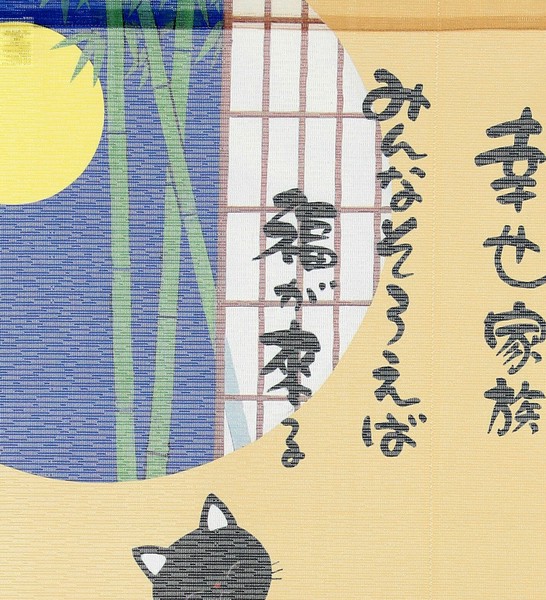 幸せ家族
みんなそろえば
福が来る